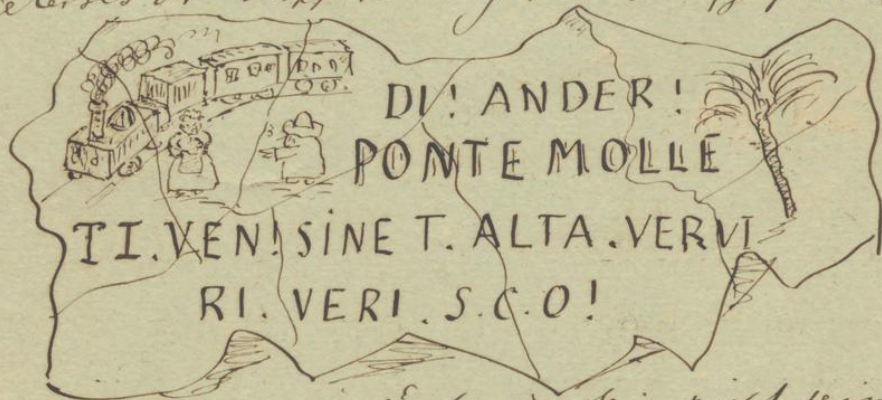 DI! ANDER!
PONTE MOLLE
TI. VEN! SINE T. ALTA. VERVI
RI. VERI. S.C.O!